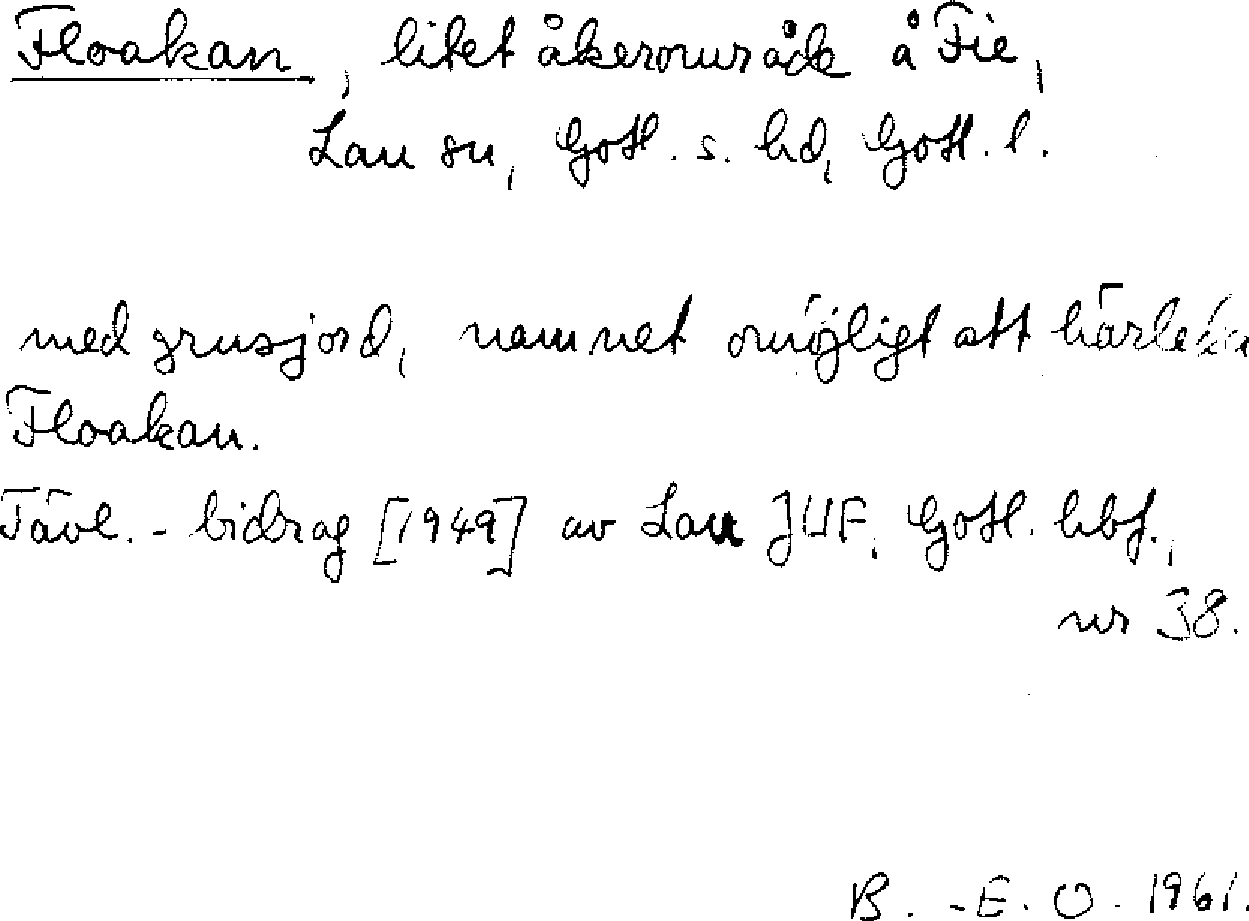 Floakan, litet åkerområde å Fie,
Lau sn, Gotl. s. hd, Gotl. l.
med grusjord, namnet omöjligt att härleda
Floakan.
Tävl.-bidrag [1949] av Lau JUF, Gotl. hbf.,
nr 38.
B.-E. O. 1961.